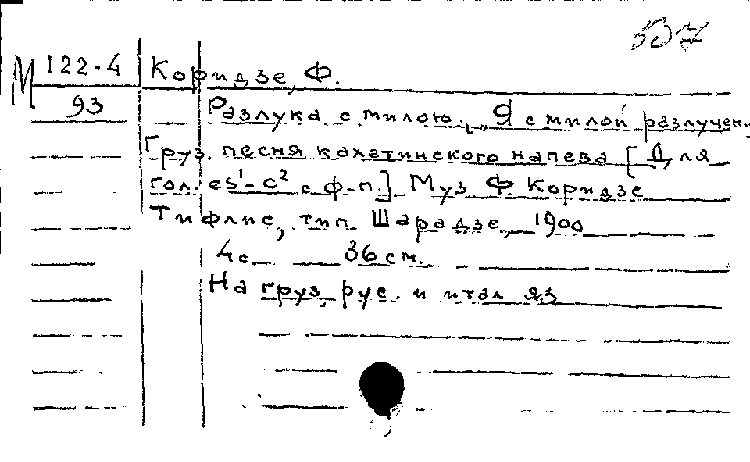 507
М 122-4 Коридзе, Ф.
93 Разлука с милою. „Я с милой разлучен
Груз. песня кахетинского напева [Для
гол. es¹-c² с ф-п.] Муз Ф. Коридзе
Тифлис, тип. Шарадзе, 1900
4с 36см.
На груз, рус. и итал яз